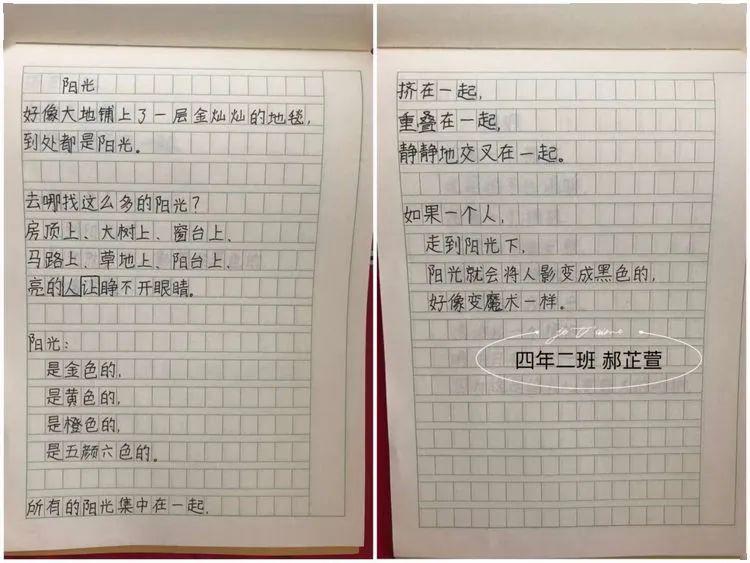 阳光
好像大地铺上了一层金灿灿的地毯，
到处都是阳光。
去哪找这么多的阳光？
房顶上、大树上、窗台上、
马路上、草地上、阳台上、
亮的人让睁不开眼睛。
阳光：
是金色的，
是黄色的，
是橙色的，
是五颜六色的。
所有的阳光集中在一起，
挤在一起，
重叠在一起，
静静地交叉在一起。
如果一个人，
走到阳光下，
阳光就会将人影变成黑色的，
好像变魔术一样。
je t'aime
四年二班 郝芷萱